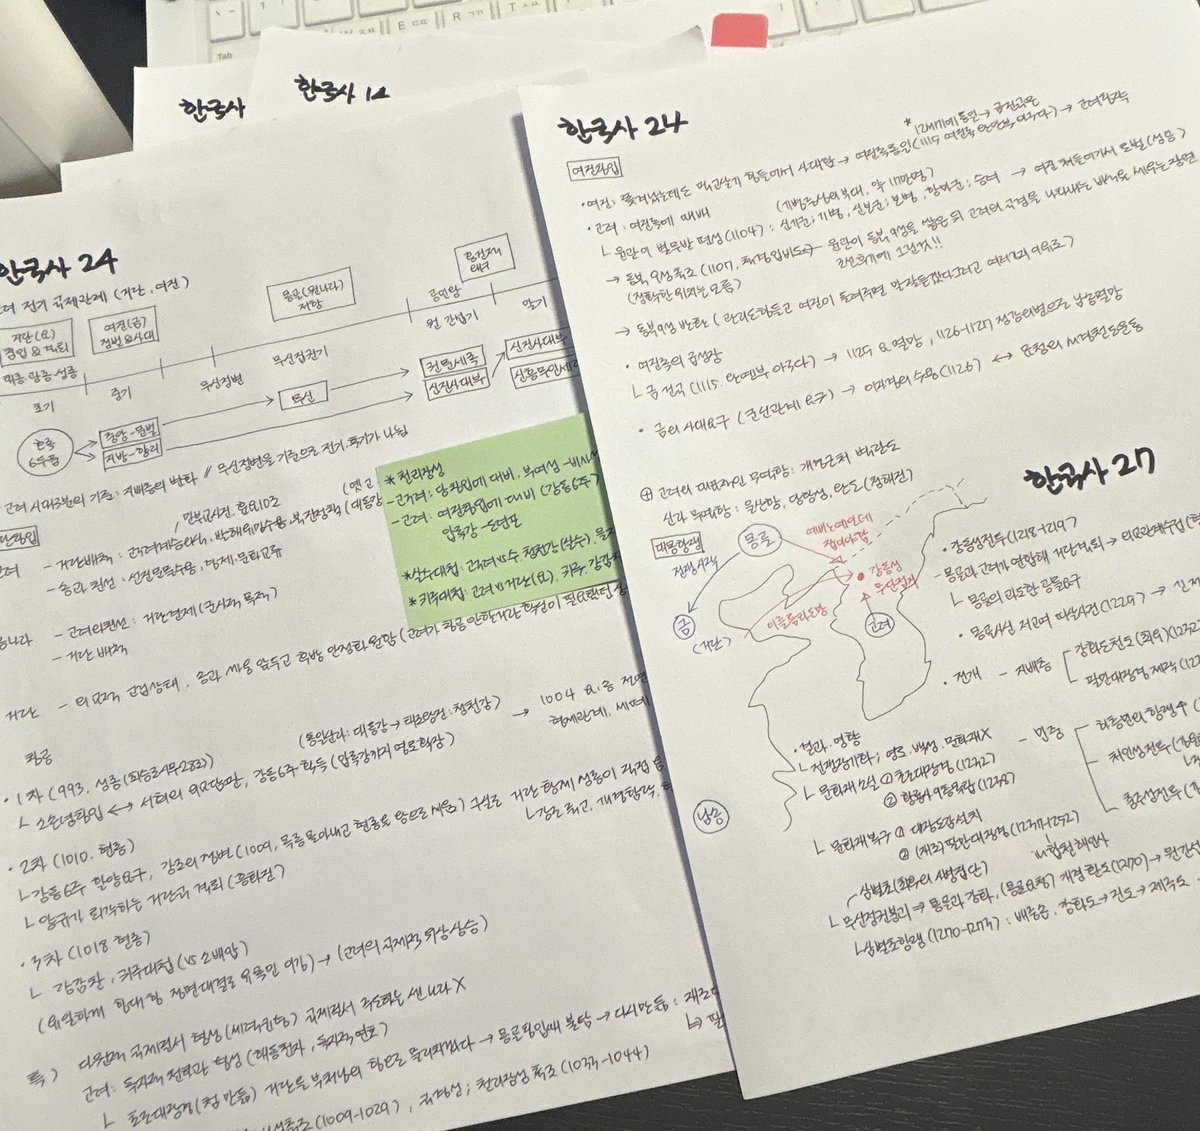 한국사
한국사 12
한국사 24
고려 전기 국제관계 (거란, 여진)
거란(요)
침입 & 격퇴
여진(금)
정벌 & 사대
몽골(원나라)
저항
공민왕
원 간섭기
말기
태종·광종·성종
초기
중기
무신정변
무신집권기
호족
6두품
중앙-문벌
지방-향리
무신
권문세족
신진사대부
신진사대부
고려 시대구분의 기준: 지배층의 변화 // 무신정변을 기준으로 전기, 후기가 나뉨
* 천리장성
- 고구려: 당침입에 대비, 부여성-비사성
- 고려: 여진침입에 대비 (강동6주)
압록강-도련포
* 살수대첩: 고구려 vs 수, 청천강(살수), 을지
* 귀주대첩: 고려 vs 거란(요), 귀주, 강감찬
- 거란배척: 고구려계승의식, 발해유민수용, 북진정책 (대동강
만부교사건, 훈요10조
- 송과 친선: 선진문물수용, 경제·문화교류
- 고려와친선: 거란견제 (군사적 목적)
- 거란 배척
거란
침공
(통일신라: 대동강 → 태조왕건: 청천강)
· 1차 (993, 성종(최승로시무28조))
ㄴ 소손녕침입 ↔ 서희의 외교담판, 강동6주 획득 (압록강까지 영토확장)
→ 1004
· 2차 (1010, 현종)
ㄴ 강동6주 반환요구, 강조의 정변 (1009, 목종 몰아내고 현종을 왕으로 세움)
ㄴ 양규가 퇴각하는 거란군 격퇴 (흥화진)
· 3차 (1018 현종)
ㄴ 강감찬, 귀주대첩 (vs 소배압)
(유일하게 힘대 힘 정면대결로 유목민 이김) → (고려의 국제적 위상 상승)
다원적 국제질서 형성 (세력균형)
고려: 독자적 천하관 형성 (해동천자, 독자적 연호)
ㄴ 초조대장경 (첨 만듦) 거란을 부처님의 힘으로 물리치겠다 → 몽골침입때 불탐 → 다시만듦:
(1009-1029), 천리장성 축조 (1033-1044)
한국사 24
여진침입
* 12세기에 통일 → 금건국은
· 여진: 여진족통일 (1115 여진족 완안부, 아구다) → 고려침략
· 고려: 여진족에 패배
(기병중심의 부대, 약 17만명)
ㄴ 윤관이 별무반 편성 (1104): 신기군; 기병, 신보군; 보병, 항마군; 승려 → 여진 쳐들어가서 토벌 (성공)
→ 동북 9성축조 (1107, 척경입비도) 윤관이 동북 9성을 쌓은 뒤 고려의 국경을 나타내는 비석을 세우는 장면
(정확한 위치는 모름)
조선후기에 그린것!!
→ 동북9성 반환 (관리도힘들고 여진이 돌려주면 말잘듣겠다그러고 여러가지 이유로)
· 여진족의 급성장
ㄴ 금 건국 (1115, 완안부 아구다) → 1125 요 멸망, 1126-1127 정강의변으로 남송멸망
· 금의 사대요구 (군신관계 요구) → 이자겸의 수용 (1126) ↔ 묘청의 서경천도운동
⊕ 고려의 대표적인 무역항: 개경근처 벽란도
신라 무역항: 울산항, 당항성, 완도 (청해진)
한국사 27
대몽항쟁
전쟁시작
몽골
금
(거란)
남송
고려
강동성
· 강동성전투 (1218-1219)
- 몽골과 고려가 연합해 거란격퇴 →
ㄴ 몽골의 과도한 공물요구
· 몽골사신 저고여 피살사건 (1225) →
· 전개 - 지배층
강화도천도 (최우) (1232
팔만대장경 제작 (12
- 민중
처인성전투
충주성전투
· 결과·영향
ㄴ 전쟁장기화; 영토·백성·문화재 X
ㄴ 문화재 소실 ① 초조대장경 (1232)
② 황룡사9층목탑 (1238)
ㄴ 문화재복구 ① 대장도감설치
② (재조)팔만대장경 (1237-1252)
in 합천해인사
삼별초 (최우의 사병집단)
ㄴ 무신정권붕괴 ⇒ 몽골과 강화, (몽골요청) 개경환도 (1270) → 원간섭
ㄴ 삼별초항쟁 (1270-1273): 배중손, 강화도 → 진도 → 제주도